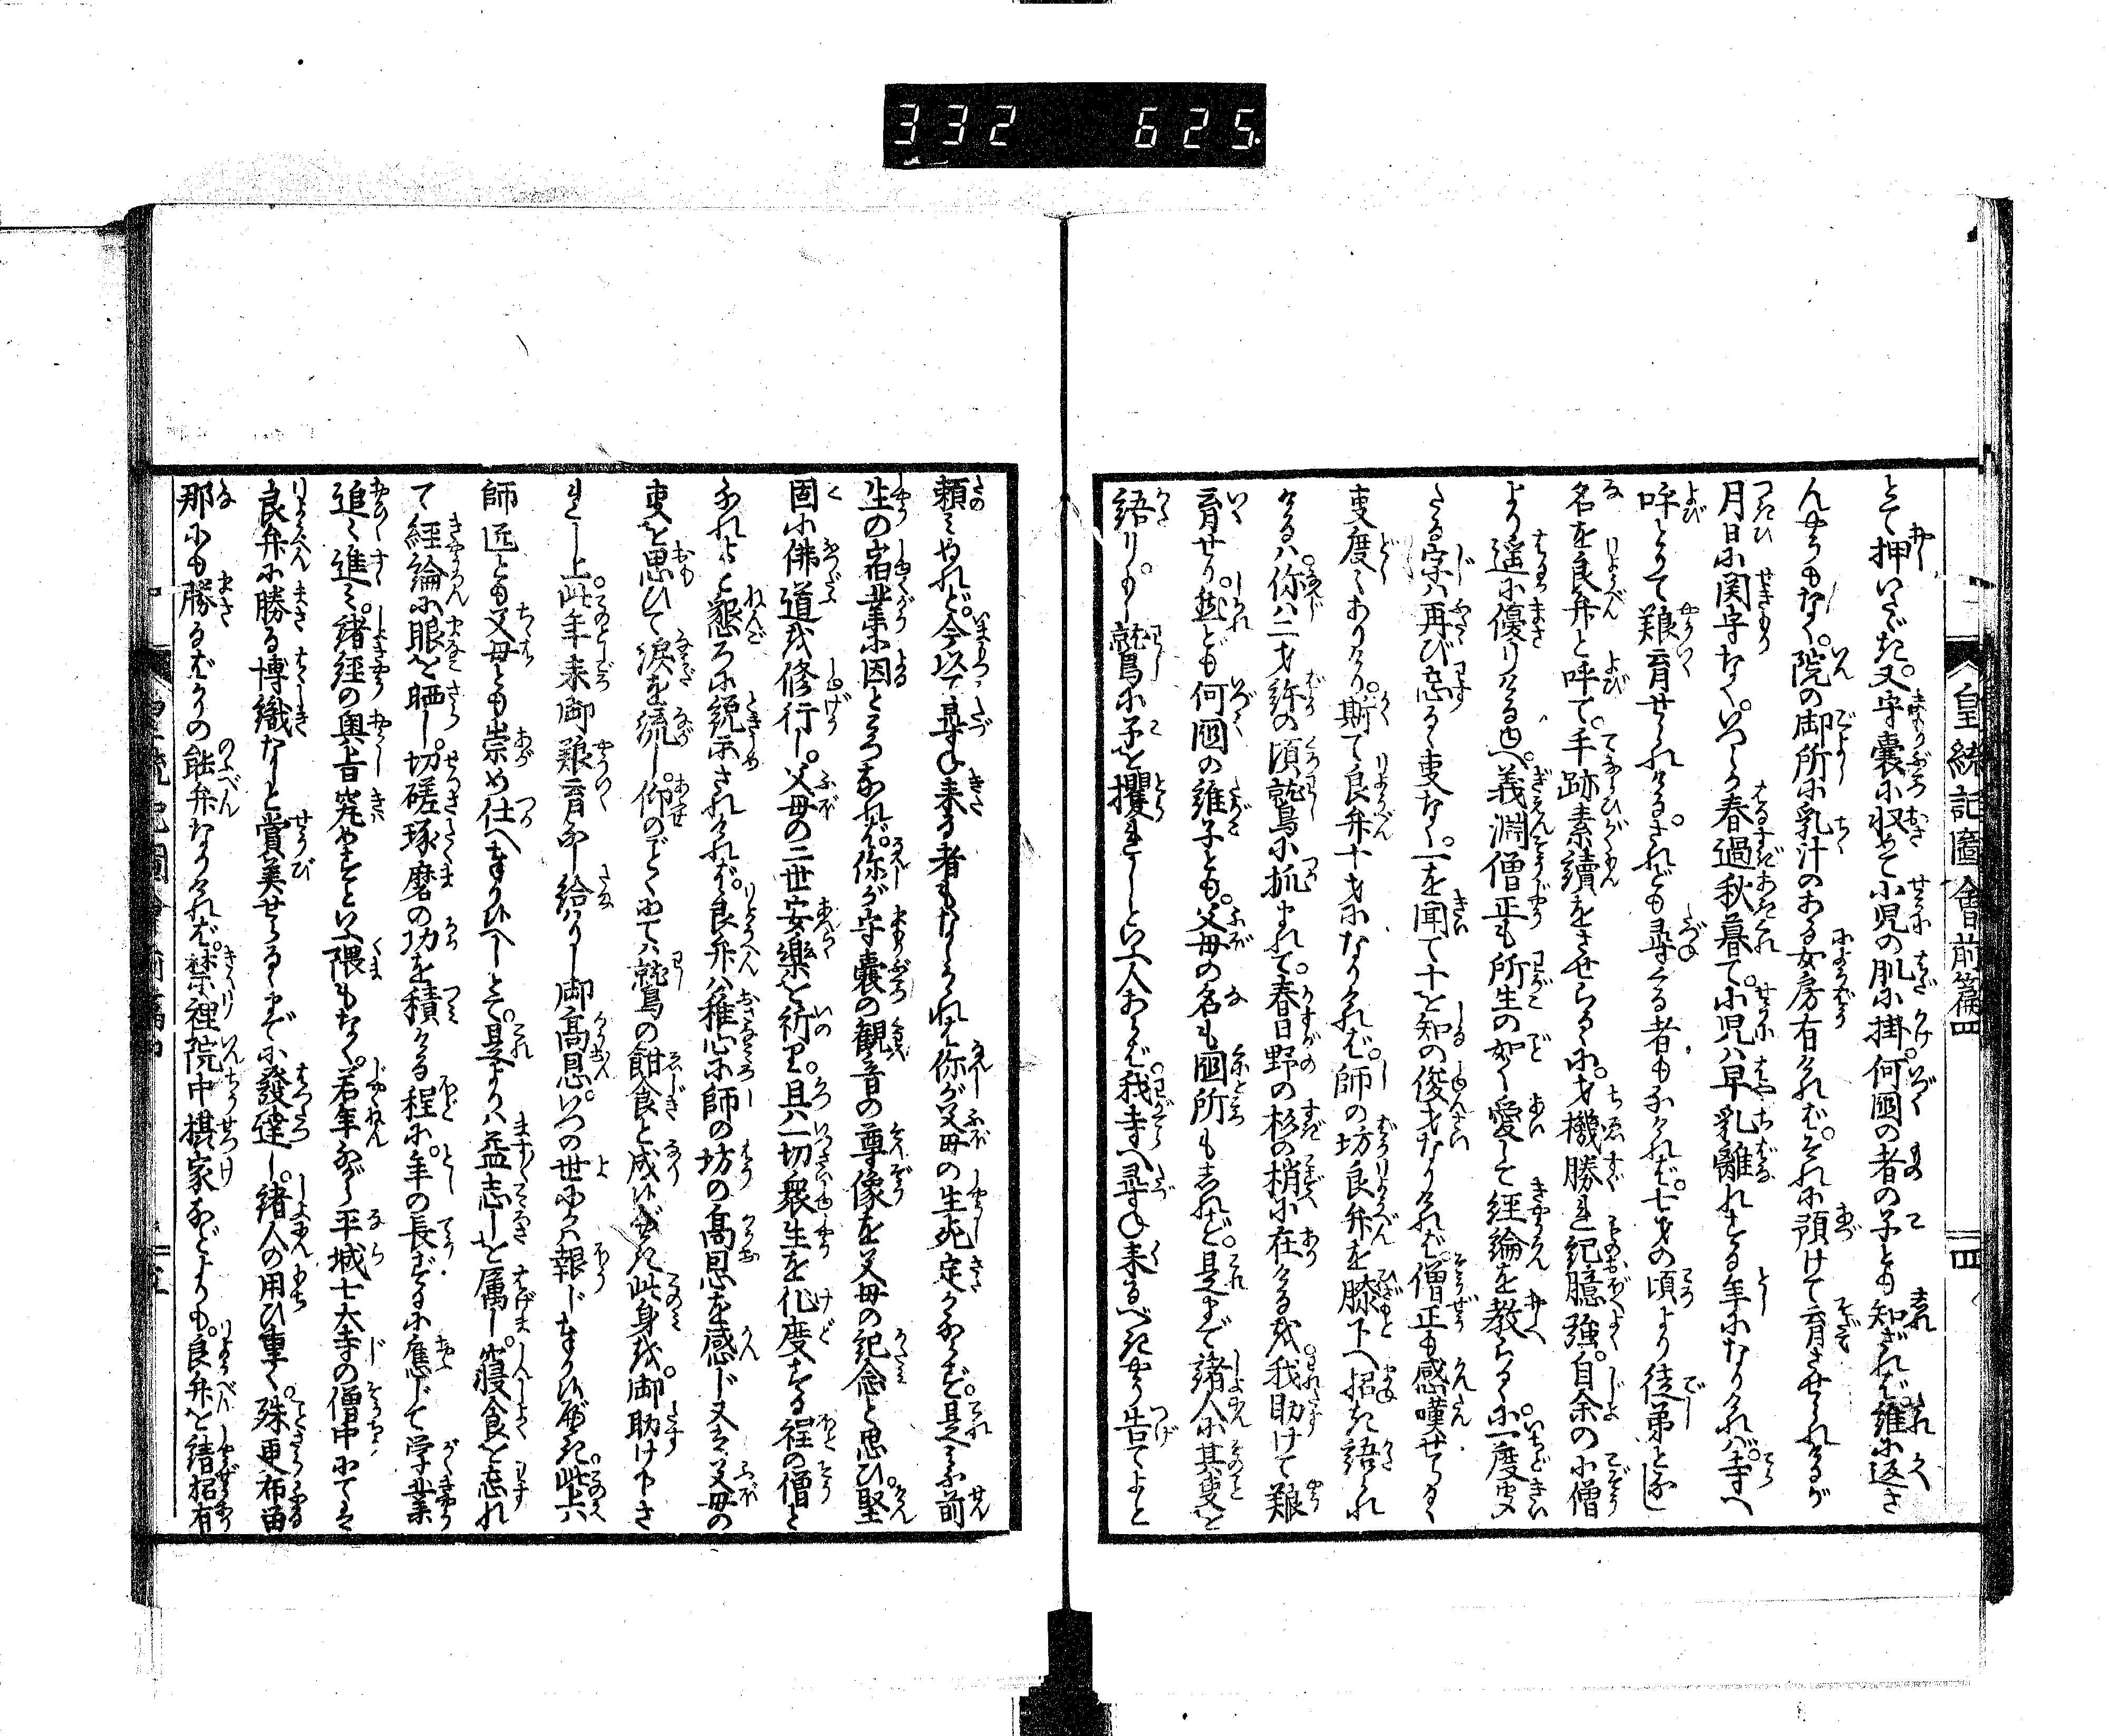 332 625
皇統記圖會前篇四
四
とて押いたゞき。又守嚢に収めて小児の肌に掛。何國の者の子とも知ざれば。誰に返さ
んやうもなく。院の御所に乳汁のある女房有ければ。それに預けて育させられけるが
月日に関守なく。いつか春過秋暮て。小児ハ早乳離れする年になりければ。寺へ
呼とりて養育せられける。されども尋くる者もなければ。七才の頃より徒弟となし
名を良弁と呼て。手跡素讀をさせらるゝに。才機勝れ記臆強。自余の小僧
より遥に優りける故。義渕僧正も所生の如く愛して経論を教らるゝに。一度聞
たる字ハ再び忘るゝ事なく。一を聞て十を知の俊才なりければ。僧正も感嘆せらるゝ
事度〻ありけり。斯て良弁十才になりければ。師の坊良弁を膝下へ招き語られ
けるハ。你ハ二才許の頃鷲に抓まれて。春日野の杉の梢に在けるを。我助けて養
育せり。然ども何國の誰子とも。父母の名も國所もしれねど。是まで諸人に其事を
語りし。鷲に子を攫れしといふ人あらば。我寺へ尋ね来るべきやう告てよと
頼みやれど。今以て尋ね来る者もなければ。你が父母の生死定かならず。是よく前
生の宿業に因ところなれば。你が守嚢の観音の尊像を父母の紀念と思ひ。堅
固に佛道を修行し。父母の二世安樂を祈り。且ハ一切衆生を化度する程の僧と
なれよと懇ろに説示されければ。良弁ハ稚心に師の坊の高恩を感じ又ハ父母の
事を思ひて涙を流し。仰のごとくにてハ鷲の餌食と成べき此身を。御助け下さ
れし上。此年来御養育なし給はりし御高恩。いつの世にか報じ奉り候べき。此上ハ
師匠とも父母とも崇め仕へ奉り候べしとて。是よりハ益志しを属し。寝食を忘れ
て経論に眼を晒し。切磋琢磨の功を積ける程に。年の長ずるに應じて学業
追〻進ミ。諸経の奥旨究めずといふ隈もなく。若年ながら平城七大寺の僧中にても
良弁に勝る博識なしと賞美せらるゝまでに發達し。諸人の用ひ重く。殊更布留
那にも勝るばかりの能弁なりければ。禁裡院中摂家などよりも。良弁を請招有